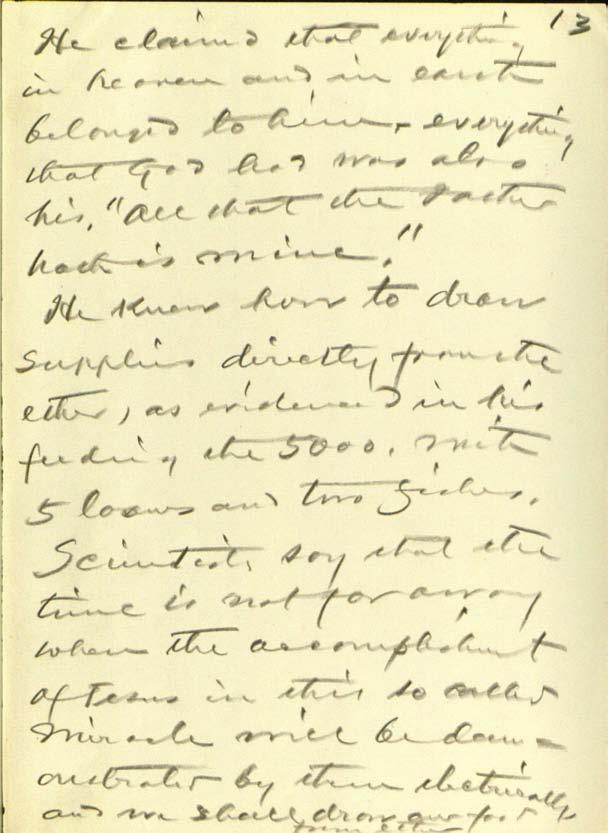 13
He claimed that everything
in heaven and in earth
belonged to him, everything
that God had was also
his, "All that the Father
hath is mine."
He knew how to draw
supplies directly from the
ether, as evidenced in his
feeding the 5000, with
5 loaves and two fishes.
Scientists say that the
time is not far away
when the accomplishment
of Jesus in this so called
miracle will be dem-
onstrated by them electrically
and we shall draw our food
from ether